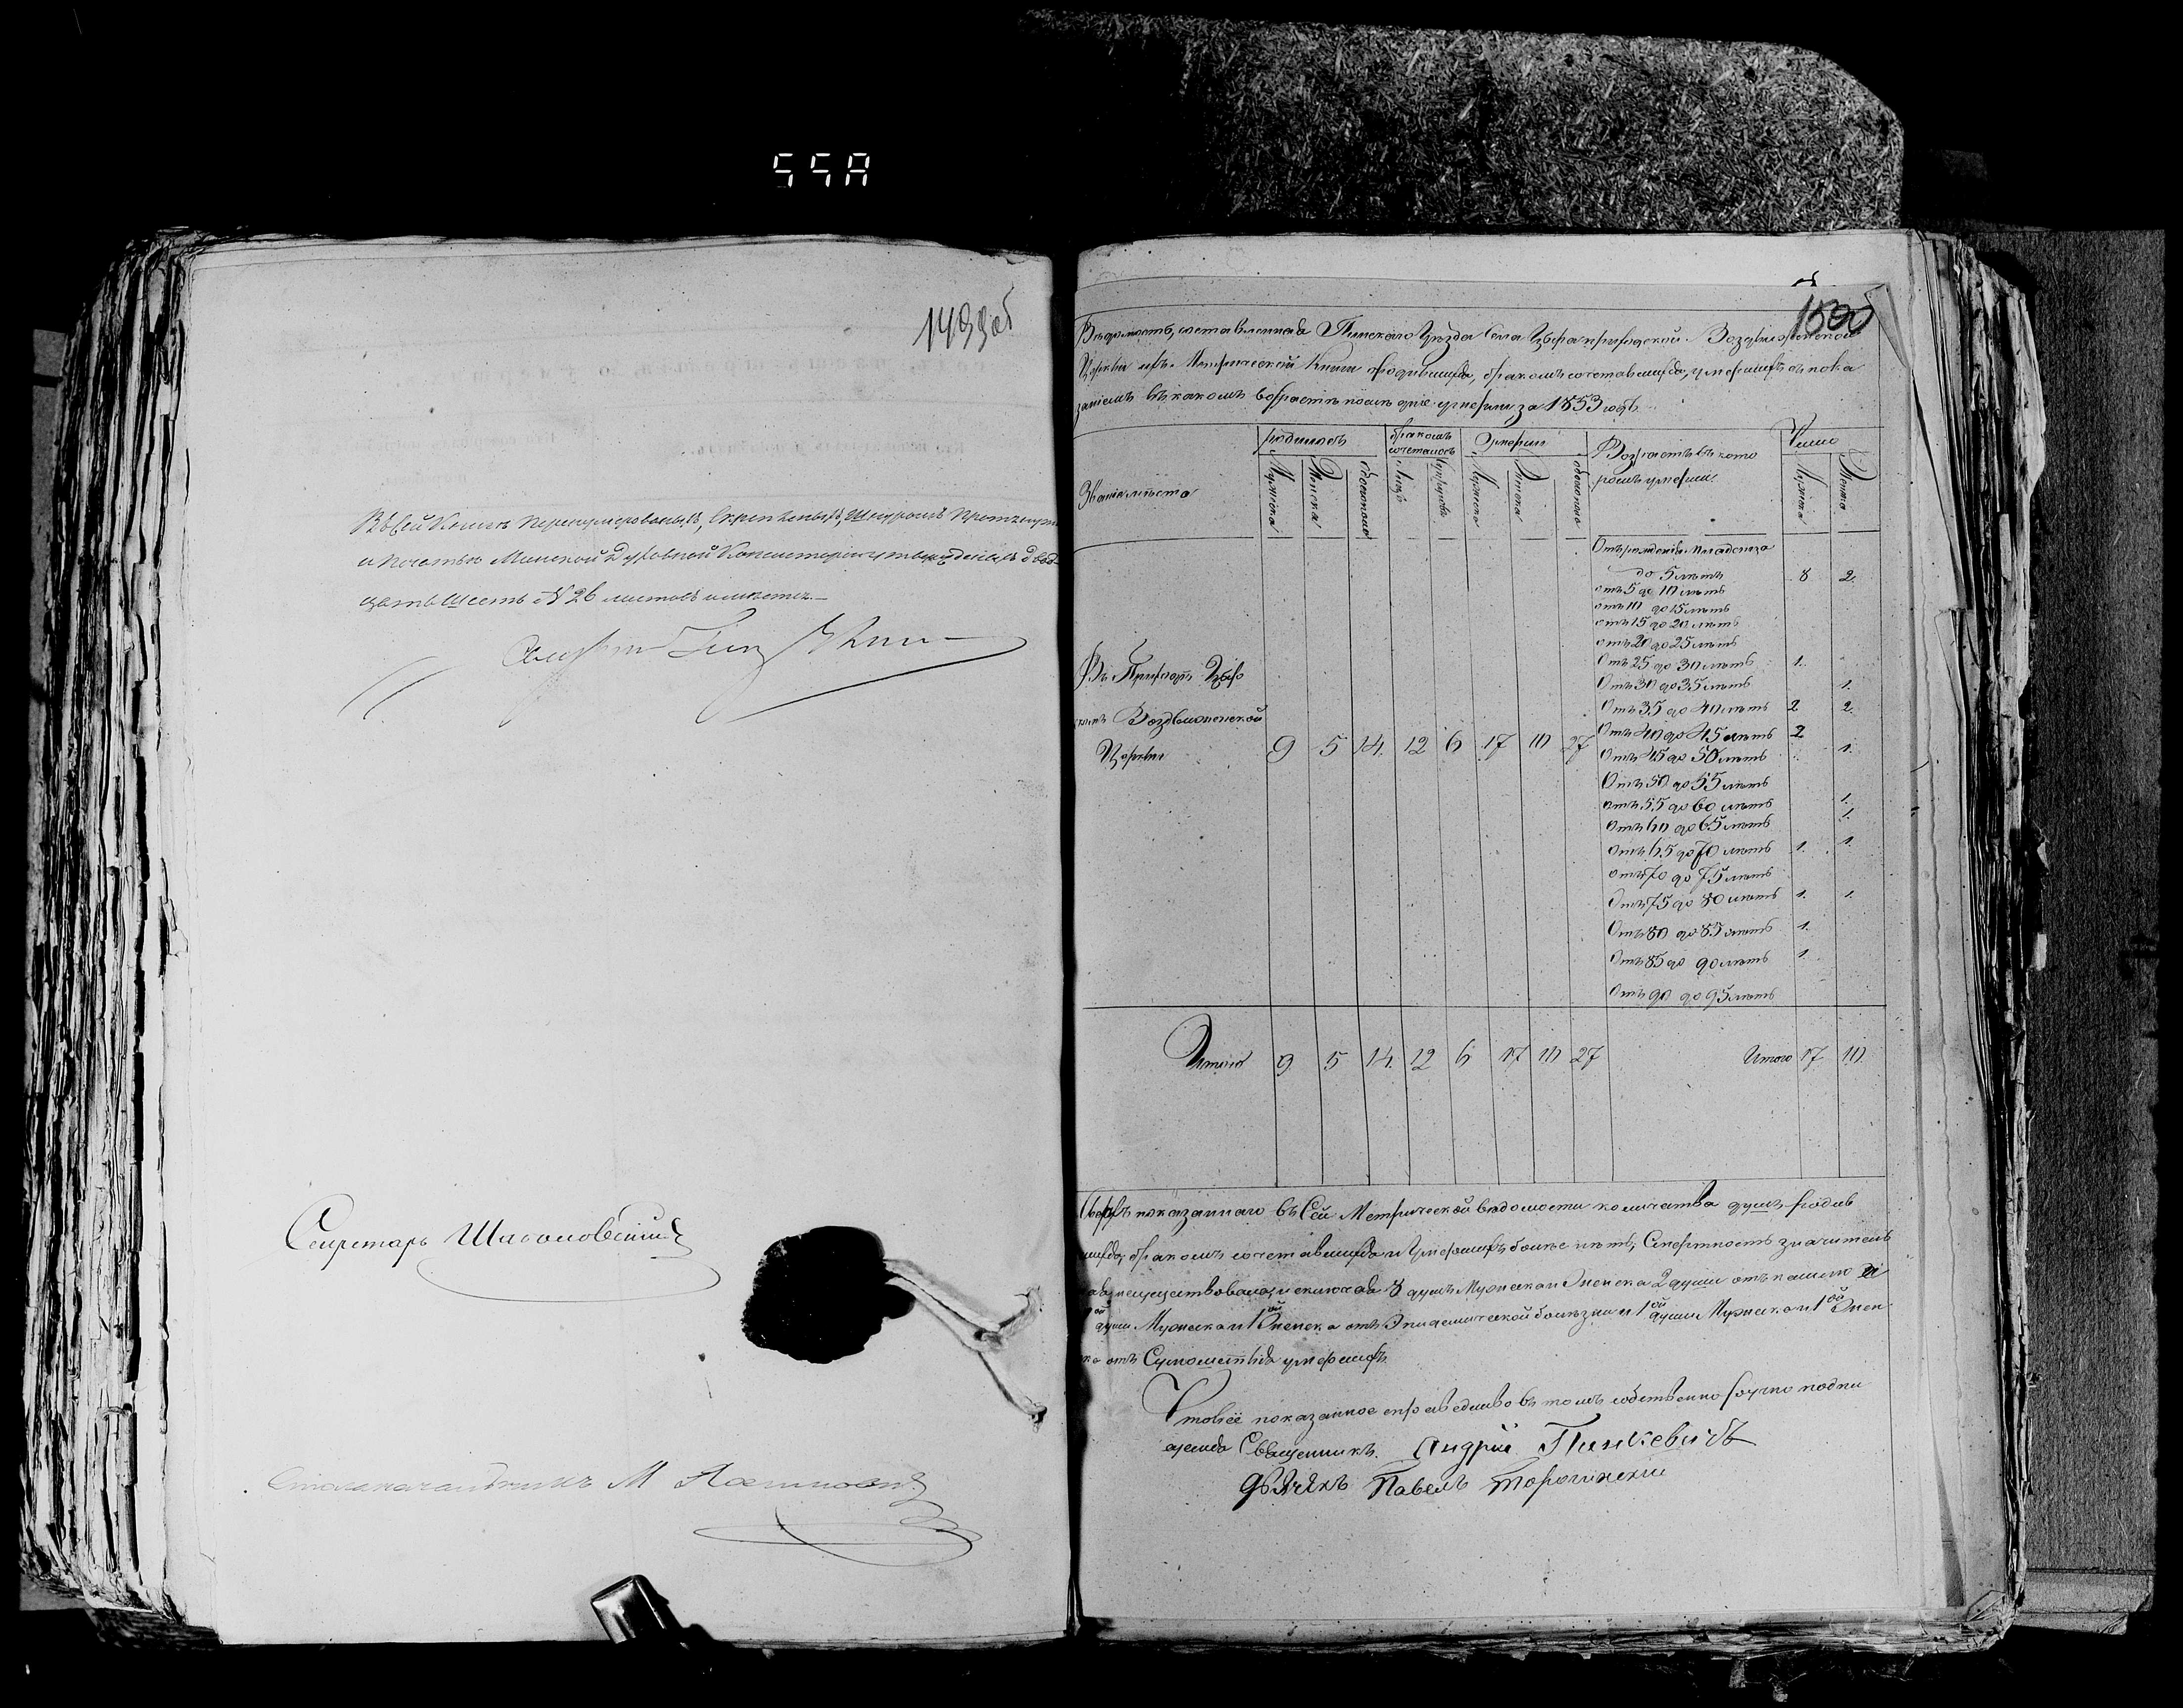 55А
1499об
Въ сей Книгѣ перенумерованыхъ, скрѣпленыхъ, Шнуромъ протянутыхъ
и печатью Минской Духовной Консисторіи утвержденыхъ двад
цать шесть N 26 листовъ имѣется.—
Секретарь
Столоначальникъ М
1500
Вѣдомость, составленная Пинскаго Уѣзда Села Воздвиженской
Церкви изъ Метрической Книги родившихся, бракомъ сочетавшихся, умершихъ съ пока
заніемъ въ какомъ возрастѣ померли за 1853 годъ.
Званіе мѣста
родилось
бракомъ сочеталось
Умерли
Возрастъ въ кото
ромъ умерли
Число
Мужеска
Женска
обоего пола
лицъ
супруговъ
Мужеска
Женска
обоего пола
Мужеска
Женска
Отъ рожденія младенца
до 5 лѣтъ 8 2.
отъ 5 до 10 лѣтъ
отъ 10 до 15 лѣтъ
отъ 15 до 20 лѣтъ
отъ 20 до 25 лѣтъ
Отъ 25 до 30 лѣтъ 1.
Отъ 30 до 35 лѣтъ 1.
Отъ 35 до 40 лѣтъ 2 2.
Отъ 40 до 45 лѣтъ 2
Отъ 45 до 50 лѣтъ 1.
Отъ 50 до 55 лѣтъ
отъ 55 до 60 лѣтъ 1.
Отъ 60 до 65 лѣтъ 1.
Отъ 65 до 70 лѣтъ 1. 1.
отъ 70 до 75 лѣтъ
Отъ 75 до 80 лѣтъ 1. 1.
Отъ 80 до 85 лѣтъ 1.
Отъ 85 до 90 лѣтъ 1
Отъ 90 до 95 лѣтъ
Въ Приходѣ
Воздвиженской
Церкви 9 5 14. 12 6 17 10 27
Итого 9 5 14. 12 6 17 10 27 Итого 17 10.
показаннаго въ Сей Метрической вѣдомости количества душъ родив
шихся, бракомъ сочетавшихся и Умершихъ болѣе нѣтъ, Смертность значитель
ная несуществовала, исключая 8 душъ Мужеска и Женска 2 души отъ кашлю
души Мужеска и 1ой Женска отъ Эпидемической болѣзни и 1ой души Мужеска и 1ой Жен
ска отъ умершихъ.
Что все показанное справедливо въ томъ собственноручно подпи
суемся Священникъ Андрій Пинкевичъ
дьячекъ Павелъ